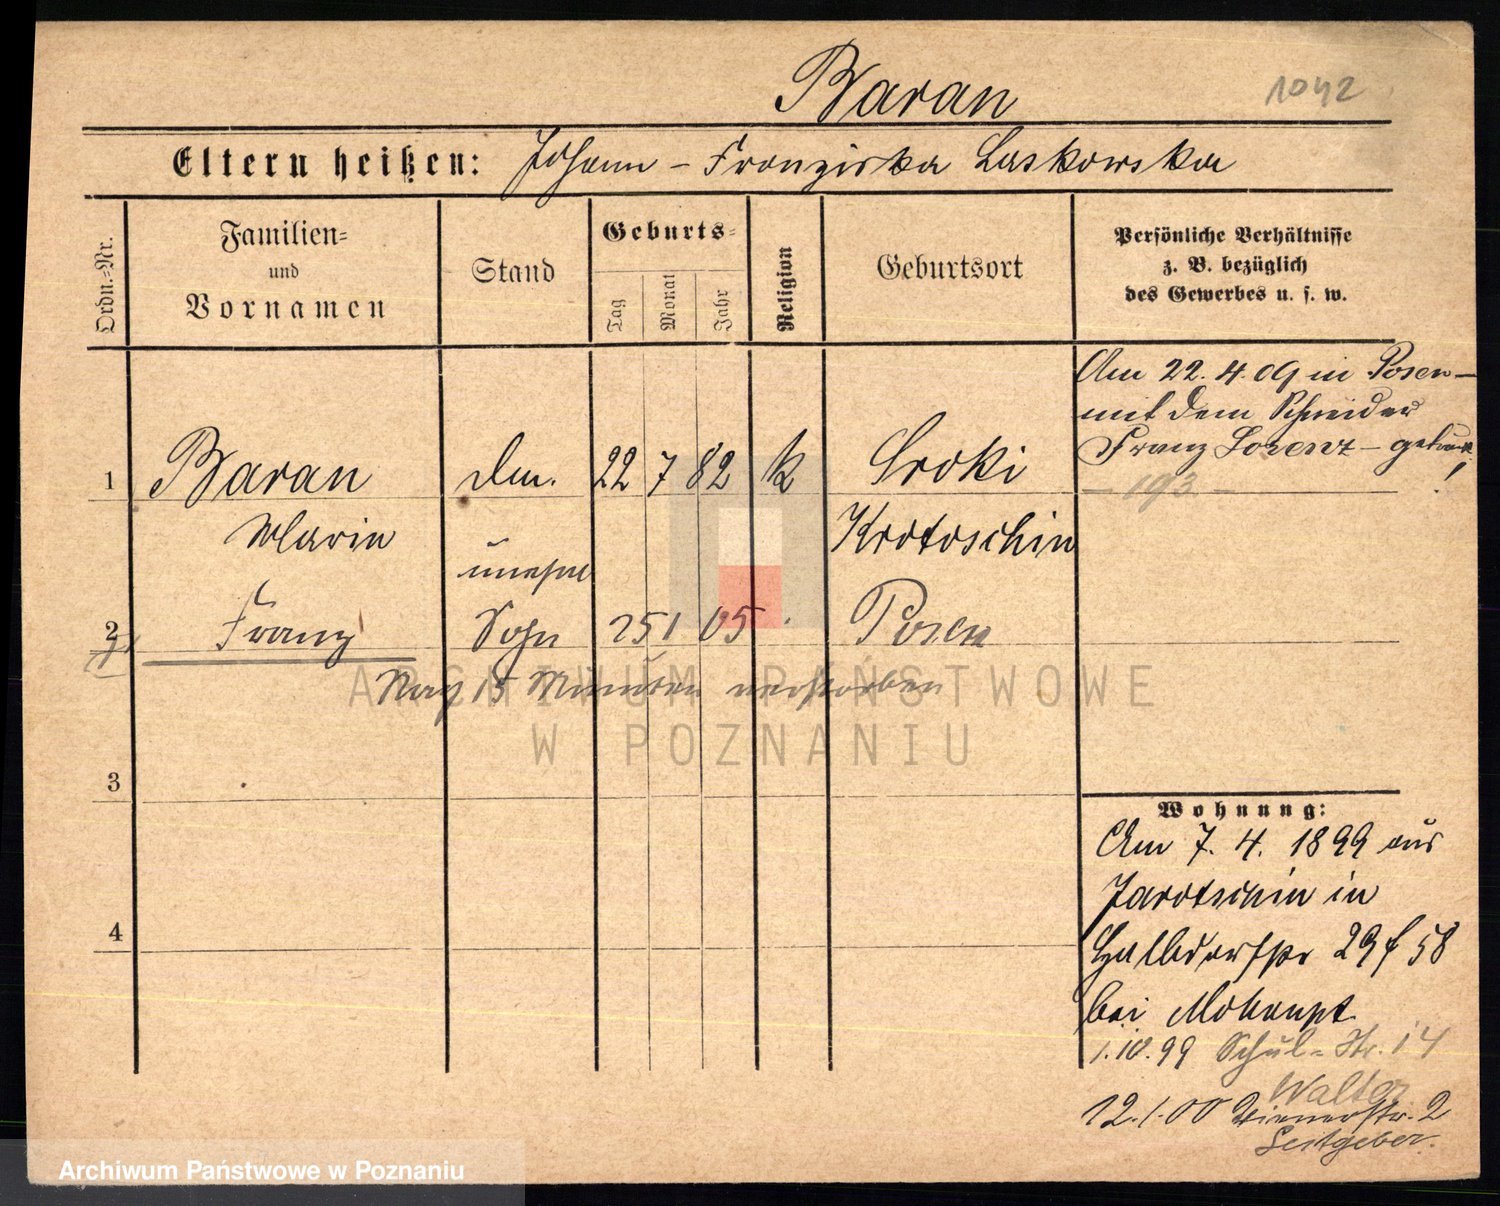 Baran
1042
Eltern heißen: Johann - Franziska Laskowska
Ordn.-Nr.
Familien-
und
Vornamen
Stand
Geburts-
Tag
Monat
Jahr
Religion
Geburtsort
Persönliche Verhältnisse
z. B. bezüglich
des Gewerbes u. s. w.
Am 22.4.09 in Posen
mit dem Schneider
Franz Lorenz - getraut
1 Baran 22 7 82 k Sroki
Marie Krotoschin
unehel
2 Franz Sohn 25 1 05 Posen
Nach 15 Minuten verstorben
3
4
Wohnung:
Am 7. 4. 1899 aus
Jarotschin in
Halbdorfstr 29 f 58
bei Mokaupt
1.10.99 Schul-Str. 14
Walter
12.1.00 Wienerstr. 2
Leitgeber.
ARCHIWUM PAŃSTWOWE
W POZNANIU
Archiwum Państwowe w Poznaniu